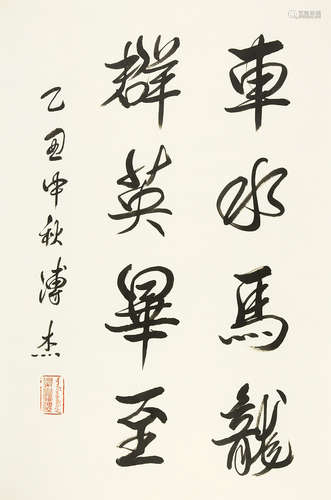 車水馬龍
群英畢至
乙丑中秋溥杰